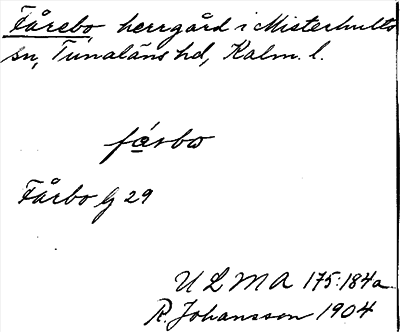 Fårebo, herrgård i Misterhults
sn, Tunaläns hd, Kalm. l.
fårbo
Fårbo G 29
U L M A 175:184a
R. Johansson 1904